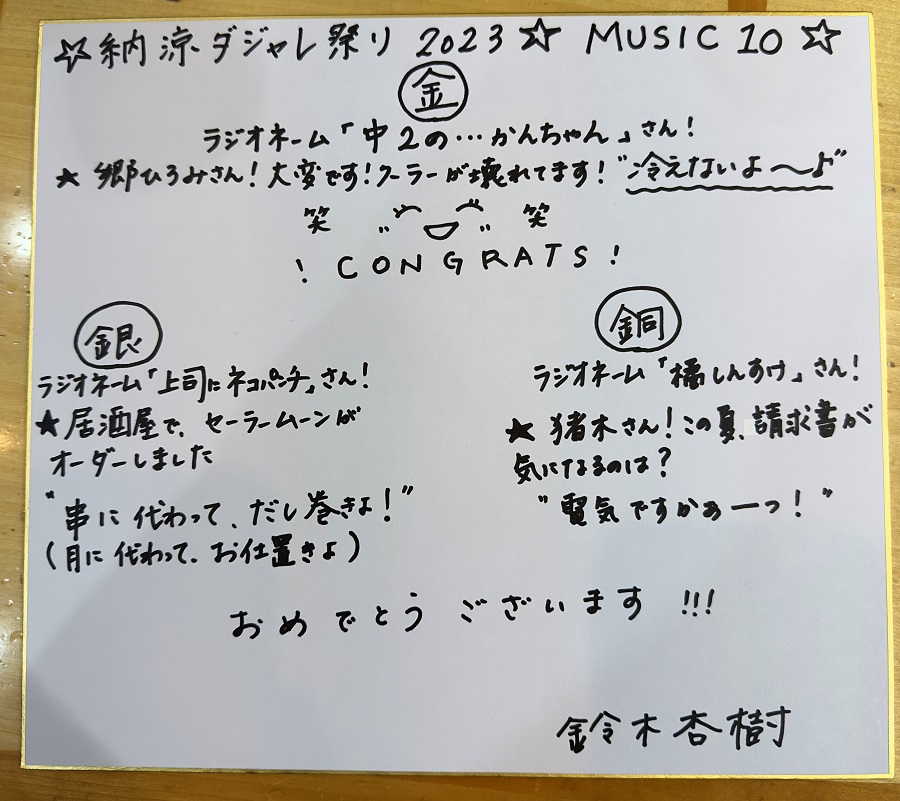 ☆納涼ダジャレ祭り 2023☆ MUSIC 10☆
金
ラジオネーム「中2の…かんちゃん」さん!
★ 郷ひろみさん!大変です!クーラーが壊れてます!"冷えないよ〜♪"
笑 笑
! CONGRATS !
銀
ラジオネーム「上司にネコパンチ」さん!
★居酒屋で、セーラームーンが
オーダーしました
"串に代わって、だし巻きよ!"
(月に代わって、お仕置きよ)
銅
ラジオネーム「橘しんすけ」さん!
★ 猪木さん!この夏、請求書が
気になるのは?
"電気ですかぁーっ!"
おめでとうございます !!!
鈴木杏樹